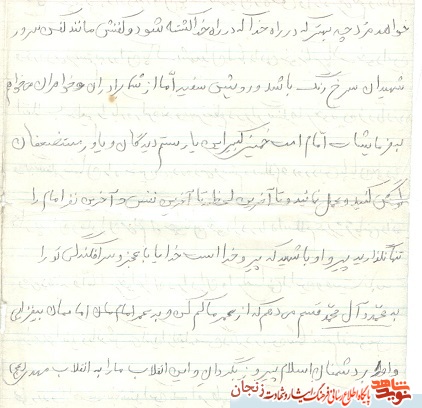 خواهد مرد چه بهتر که در راه خدا که در راه خدا کشته شود و کفنش مانند کفن سرور
شهیدان سرخ رنگ باشد و رویش سفید امّا از شما برادران و خواهران میخواهم
به فرمایشات امام امت خمینی کبیر این یار ستم دیدگان و یاور مستضعفان
گوش کنید و عمل نمائید و تا آخرین لحظه تا آخرین نفس و آخرین نفر امام را
تنها نگذارید پیرو او باشید که پیرو خدا است خدایا با عجز و سرافکندگی تو را
به محمّد و آل محمّد قسم می دهم که از عمر ما کم کن و به عمر امام مان اماممان بیفزایی
و او را بر دشمنان اسلام پیروز بگردان و این انقلاب ما را به انقلاب مهدی (عج)
نوید شاهد
پایگاه اطلاع رسانی فرهنگ ایثار و شهادت زنجان